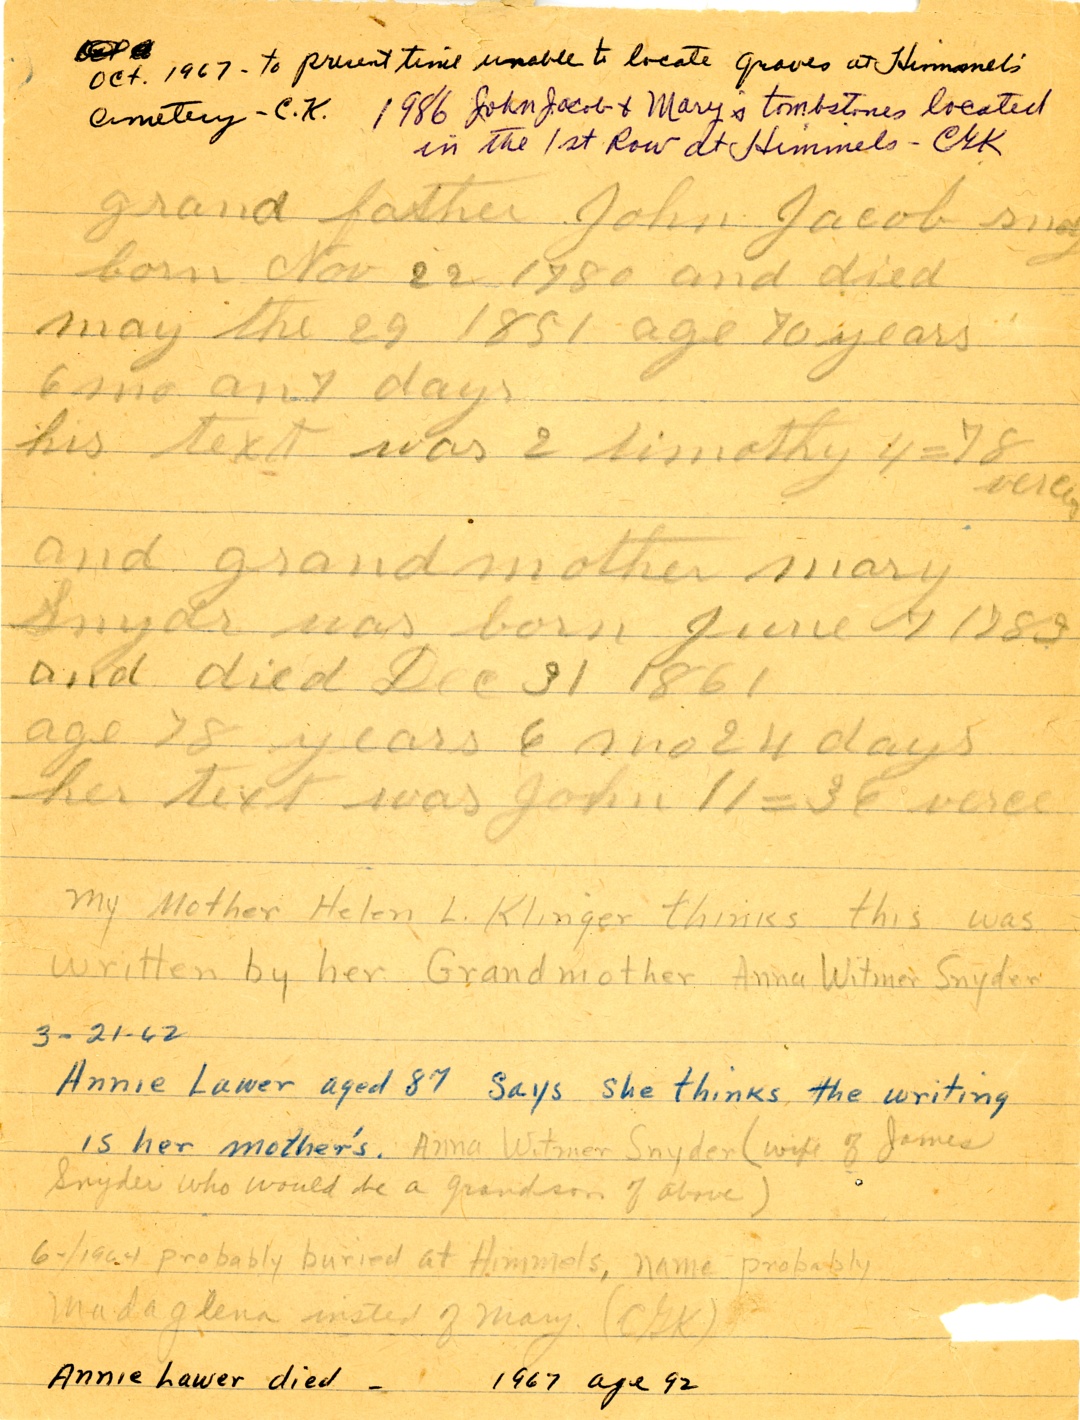 Oct. 1967 - to present time unable to locate graves at Himmel's
cemetery - C.K. 1986 John Jacob & Mary's tombstones located
in the 1st Row at Himmels - CGK
grand father John Jacob
born Nov 22 1780 and died
may the 29 1851 age 70 years
6 mo an 7 days
his text was 2 timothy 4=78
and grandmother mary
Snydr was born June 7 1783
and died Dec 31 1861
age 78 years 6 mo 24 days
her text was John 11=36 verce
My Mother Helen L. Klinger thinks this was
written by her Grandmother Anna Witmer Snyder
3-21-62
Annie Lawer aged 87 says she thinks the writing
is her mother's. Anna Witmer Snyder (wife of James
Snyder who would be a grandson of above)
6-/1964 probably buried at Himmels, name probably
Madaglena insted of Mary. (CGK)
Annie Lawer died - 1967 age 92